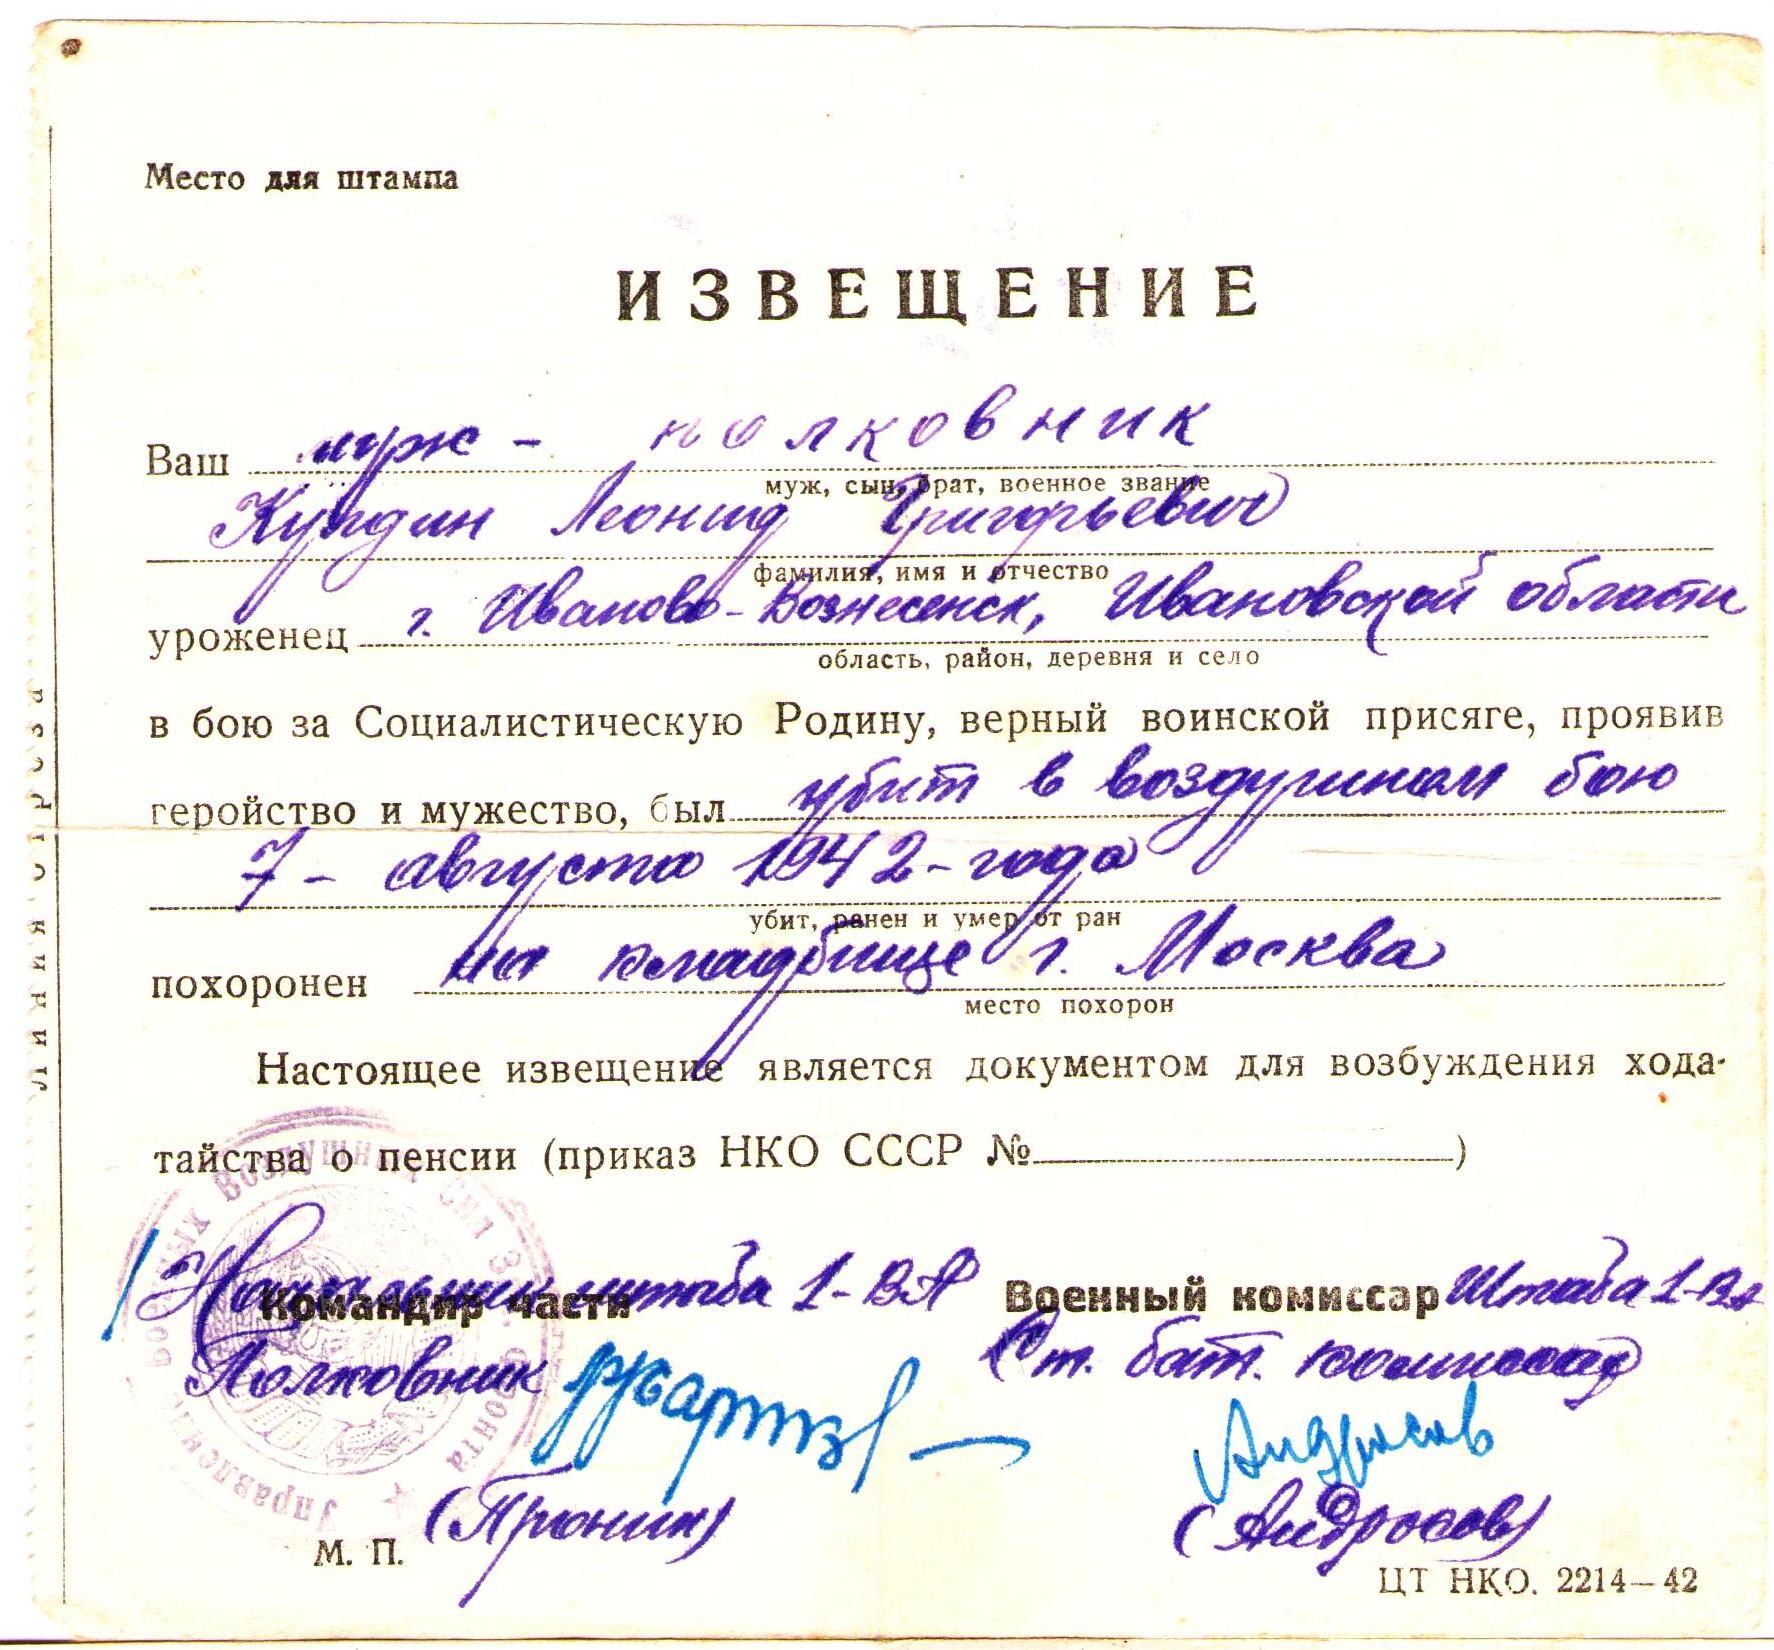 Место для штампа
ИЗВЕЩЕНИЕ
Ваш муж - полковник
муж, сын, брат, военное звание
Кулдин Леонид Григорьевич
фамилия, имя и отчество
уроженец г. Иваново-Вознесенск, Ивановской области
область, район, деревня и село
в бою за Социалистическую Родину, верный воинской присяге, проявив
геройство и мужество, был убит в воздушном бою
7 - августа 1942 - года
убит, ранен и умер от ран
похоронен на кладбище г. Москва
место похорон
Настоящее извещение является документом для возбуждения хода-
тайства о пенсии (приказ НКО СССР № )
Начальник штаба 1-ВА Военный комиссар Штаба 1-ВА
Командир части
Полковник Ст. бат. комиссар
Андросов
(Пронин) (Андросов)
М. П.
ЦТ НКО. 2214—42
Линия отреза
Управление Военных Воздушных Сил Фронта